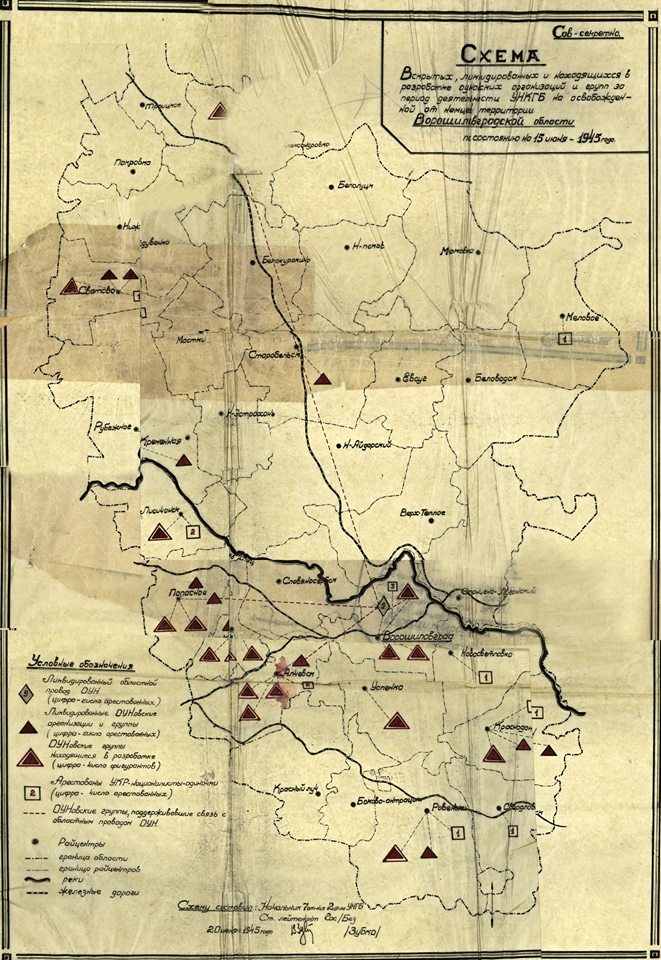 Сов-секретно.
СХЕМА
Вскрытых, ликвидированных и находящихся в
разработке оуновских организаций и групп за
период деятельности УНКГБ на освобожден-
ной от немцев территории
Ворошиловградской области
по состоянию на 15 июня - 1945 года.
Троицкое
Покровка
Белолуцк
Ниж
дуванка
Белокуракино
Н-псков
Марковка
Сватово
Меловое
1
Мостки
Старобельск
Евсуг
Беловодск
Н-Астрахань
Рубежное
Кременная
Н-Айдарский
Лисичанск
2
Верх-Теплое
Славяносербск
Попасное
3
9
Ворошиловград
Новосветловка
1
Алчевск
Успенка
1
Краснодон
Красный луч
Боково-антрацит
Ровеньки
Свердлов
1
1
Условные обозначения
9
Ликвидированный областной
провод ОУН
(цифра-число арестованных)
Ликвидированные ОУНовские
организации и группы
(цифра-число арестованных)
ОУНовские группы
находящиеся в разработке
(цифра-число фигурантов)
2
Арестованы УКР-националисты-одиночки
(цифра-число арестованных)
ОУНовские группы, поддерживавшие связь с
областным проводом ОУН
Райцентры
граница области
граница райцентров
реки
железные дороги
Схему составил: Начальник 7 отд-ия 2 отдела УНГБ
Ст. лейтенант Гос/Без
20 июня 1945 года /Зубко/